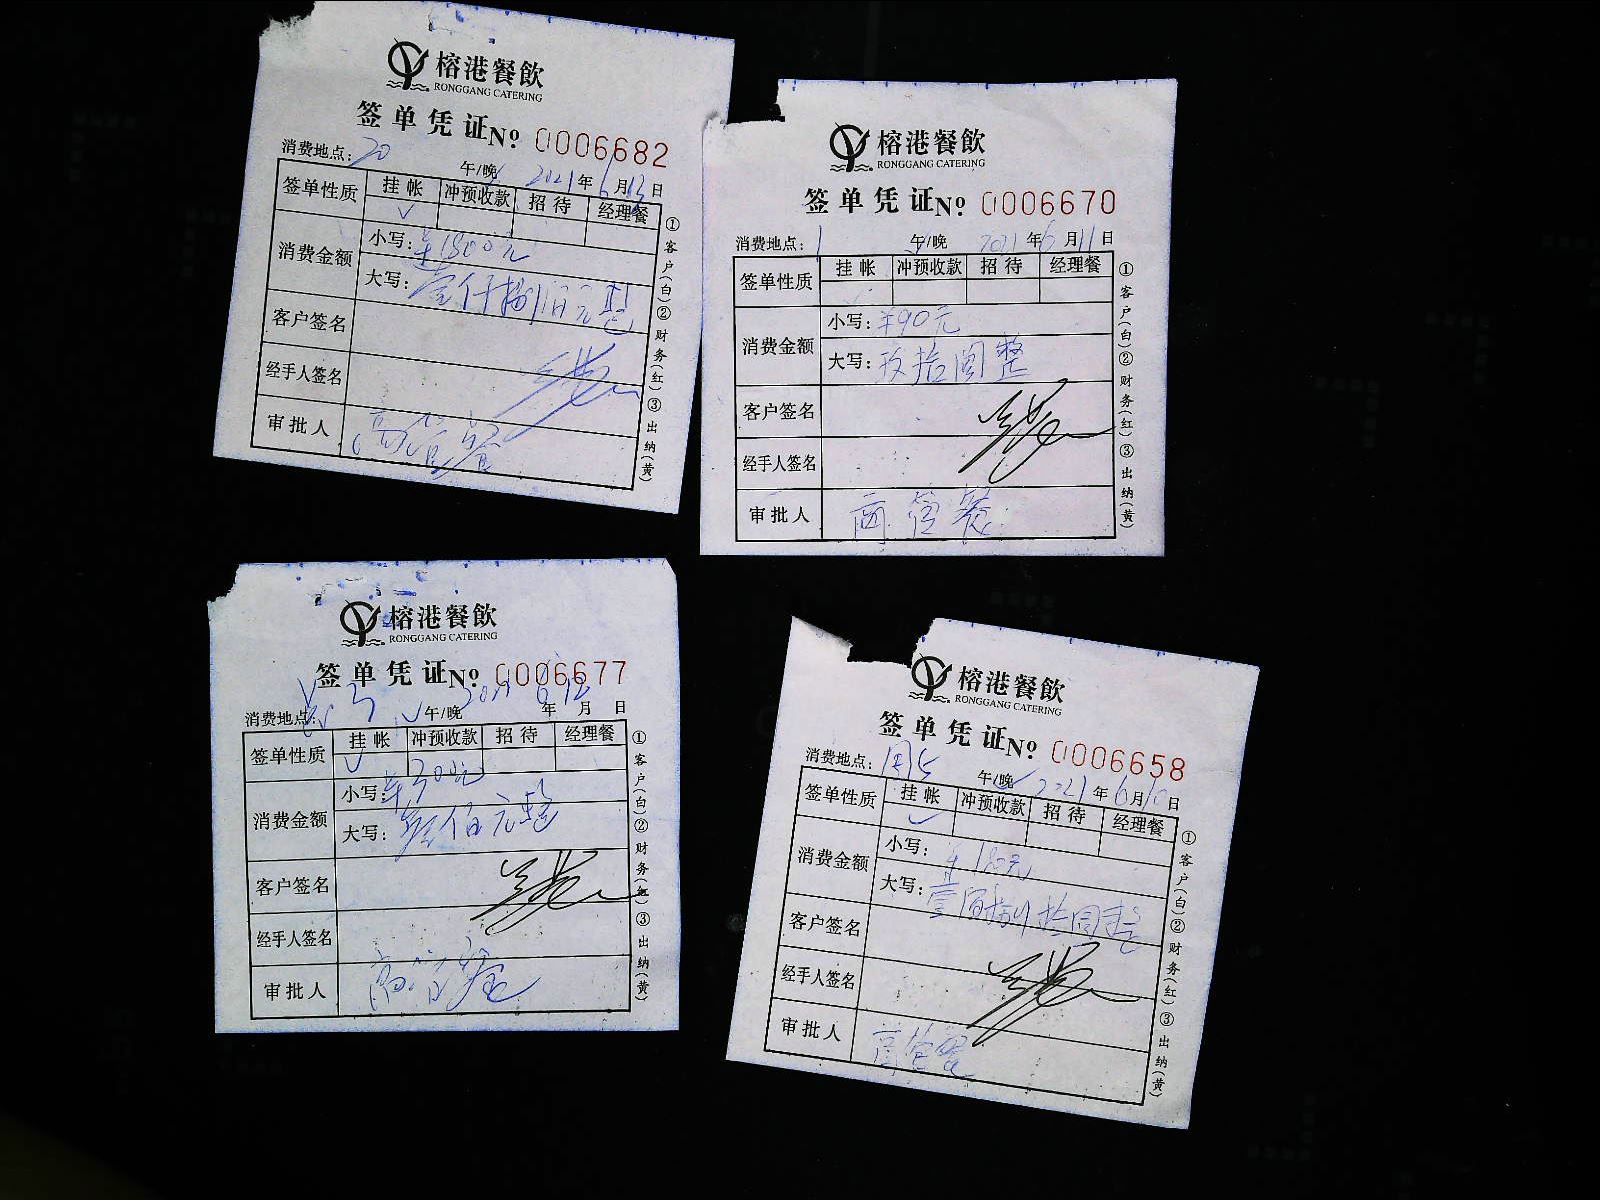 榕港餐飲
RONGGANG CATERING
签单凭证 № 0006682
消费地点：20 午/晚 2021年6月13日
签单性质 挂帐 冲预收款 招待 经理餐
✓
消费金额 小写：¥1800元
大写：壹仟捌佰元整
客户签名
经手人签名
审批人 高管餐
①客户（白）②财务（红）③出纳（黄）
榕港餐飲
RONGGANG CATERING
签单凭证 № 0006670
消费地点：1 午/晚 2021年6月11日
签单性质 挂帐 冲预收款 招待 经理餐
消费金额 小写：¥90元
大写：玖拾圆整
客户签名
经手人签名
审批人 高管餐
①客户（白）②财务（红）③出纳（黄）
榕港餐飲
RONGGANG CATERING
签单凭证 № 0006677
消费地点： 午/晚 2021年6月12日
签单性质 挂帐 冲预收款 招待 经理餐
✓
消费金额 小写：¥300元
大写：叁佰元整
客户签名
经手人签名
审批人 高管餐
①客户（白）②财务（红）③出纳（黄）
榕港餐飲
RONGGANG CATERING
签单凭证 № 0006658
消费地点： 午/晚 2021年6月10日
签单性质 挂帐 冲预收款 招待 经理餐
✓
消费金额 小写：¥180元
大写：壹佰捌拾圆整
客户签名
经手人签名
审批人 高管餐
①客户（白）②财务（红）③出纳（黄）